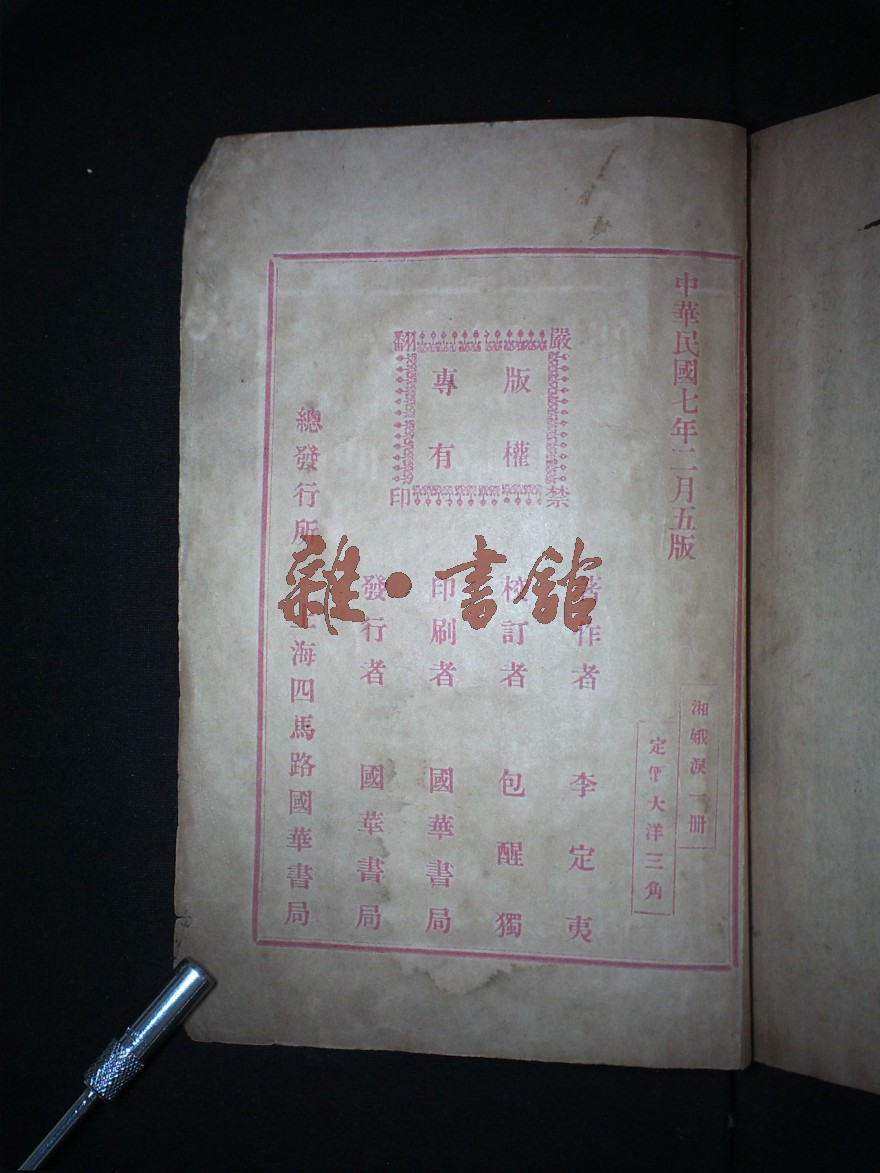 中華民國七年二月五版
湘娥淚一冊
定價大洋三角
嚴禁翻印
版權
專有
著作者 李定夷
校訂者 包醒獨
印刷者 國華書局
發行者 國華書局
總發行所 上海四馬路國華書局
雜·書館